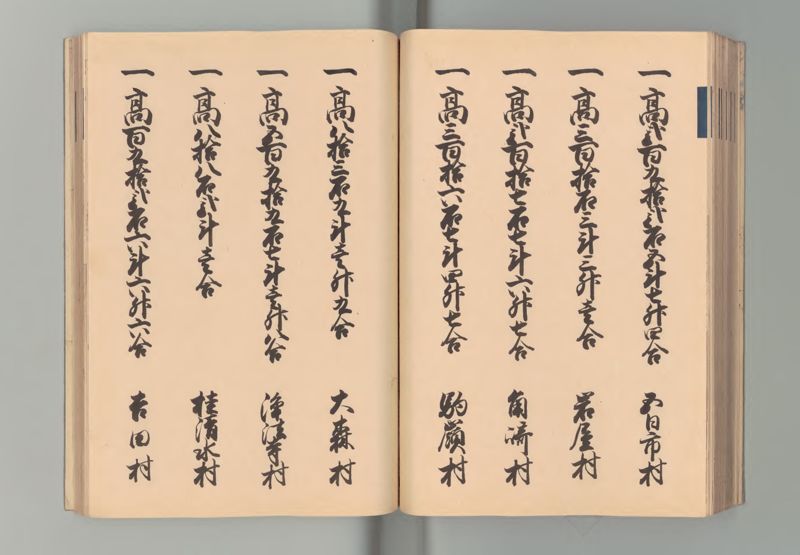 一高弐百九拾弐石五斗七升四合 五日市村
一高三百拾石三斗三升壱合 岩屋村
一高弐百拾七石七斗六升七合 角崎村
一高三百拾六石七斗四升七合 駒嶺村
一高八拾三石九斗壱升九合 大森村
一高五百九拾五石七斗壱升八合 浄法寺村
一高八拾八石弐斗壱合 桂清水村
一高百九拾弐石六斗六升六合 吉田村